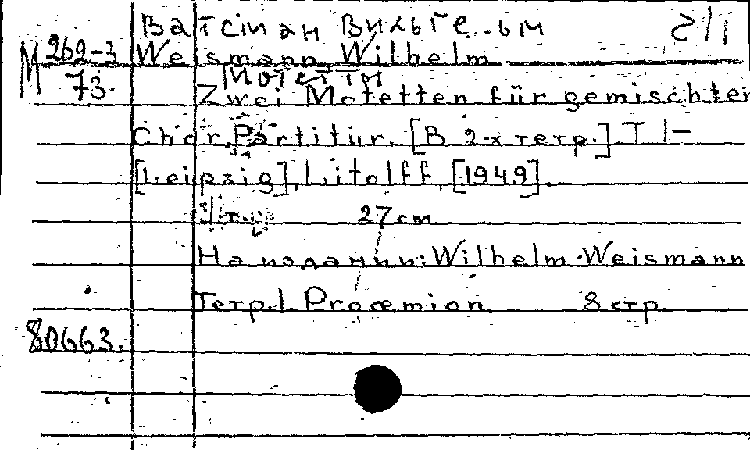 Вайсман Вильгельм
М 269-3 Weismann, Wilhelm
73. Мотетти
Zwei Motetten für gemischten
Chor. Partitur. [В 2-х тетр.] Т 1-
[Leipzig], Litolff, [1949].
27 см
На подании: Wilhelm Weismann
Тетр. 1 Proœmion 8 стр
80663.